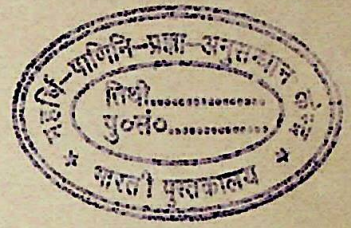 महर्षि-पाणिनि-प्रज्ञा-अनुसन्धान केन्द्र
तिथी..................
पु०सं०..................
* भारती पुस्तकालय *